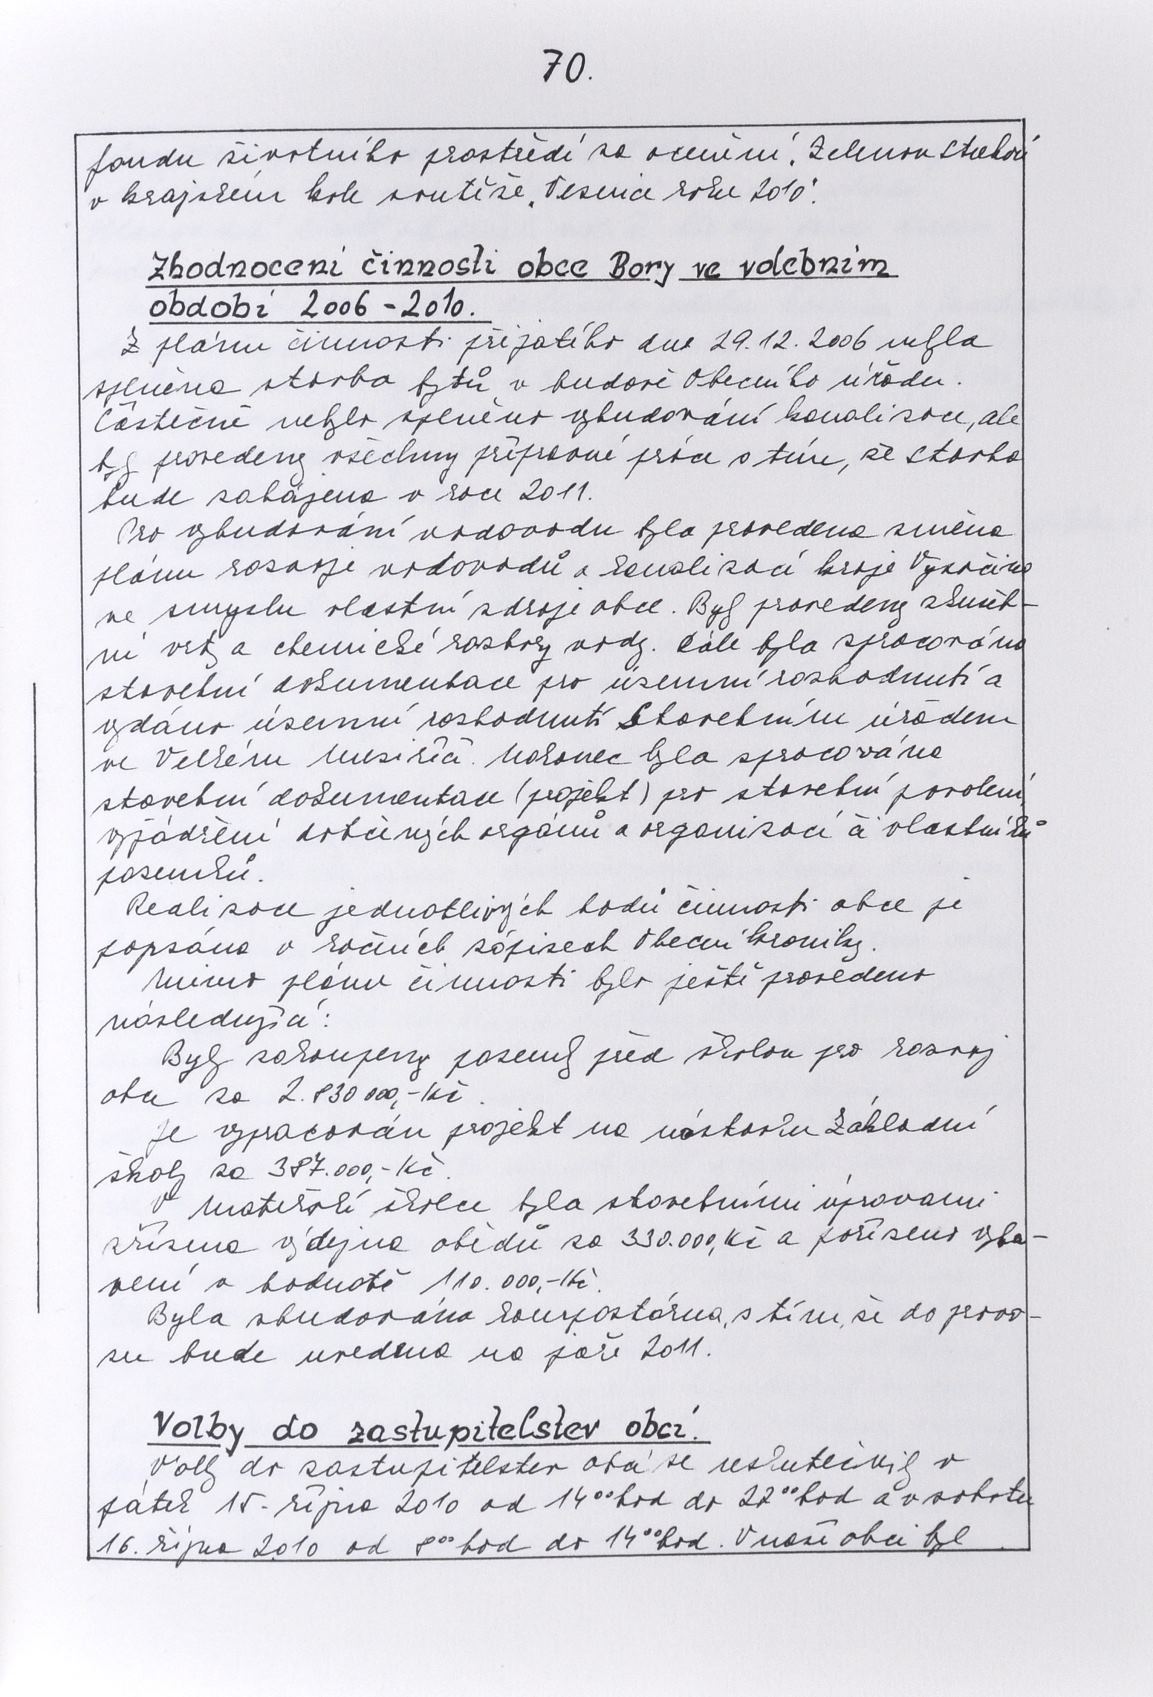 70.
fondu životního prostředí za ocenění „Zelenou stuhou
v krajském kole soutěže „Vesnice roku 2010".
Zhodnocení činnosti obce Bory ve volebním
období 2006-2010.
Z plánu činnosti přijatého dne 29.12.2006 nebyla
splněna stavba bytů v budově Obecního úřadu.
Částečně nebylo splněno vybudování kanalizace, ale
byly provedeny všechny přípravné práce s tím, že stavba
bude zahájena v roce 2011.
Pro vybudování vodovodu byla provedena změna
plánu rozvoje vodovodů a kanalizací kraje Vysočina
ve smyslu vlastní zdroje obce. Byly provedeny zkušeb-
ní vrty a chemické rozbory vody. Dále byla zpracována
stavební dokumentace pro územní rozhodnutí a
vydáno územní rozhodnutí Stavebním úřadem
ve Velkém Meziříčí. Nakonec byla zpracována
stavební dokumentace (projekt) pro stavební povolení,
vyjádření dotčených orgánů a organizací či vlastníků
pozemků.
Realizace jednotlivých bodů činnosti obce je
popsána v ročních zápisech Obecní kroniky.
Mimo plánu činnosti bylo ještě provedeno
následující:
Byly zakoupeny pozemky před školou pro rozvoj
obce za 2.830 000,-Kč.
Je vypracován projekt na nástavbu Základní
školy za 387.000,-Kč.
V mateřské školce byla stavebními úpravami
zřízena výdejna obědů za 330.000,Kč a pořízeno vyba-
vení v hodnotě 110.000,-Kč.
Byla zbudována kompostárna, s tím, že do provo-
zu bude uvedena na jaře 2011.
Volby do zastupitelstev obcí.
Volby do zastupitelstev obcí se uskutečnily v
pátek 15. října 2010 od 14⁰⁰hod do 22⁰⁰hod a v sobotu
16. října 2010 od 8⁰⁰hod do 14⁰⁰hod. V naší obci byl